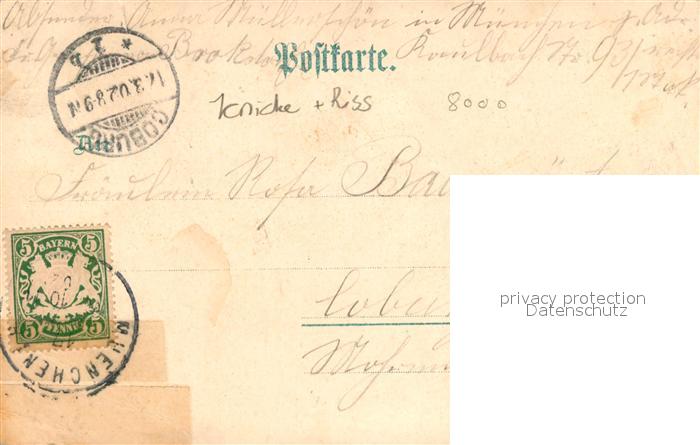 Absender: Anna Müllerschön in München p. Ad.
Brok Kaulbach Str. 93/
Postkarte.
COBURG
17.3.02.8-9 N
* 1 b
Knicke + Riss 8000
An
Fräulein Rosa Bau
BAYERN
5 5
5 5
PFENNIG
MUENCHEN
Cobu
Mohren
privacy protection
Datenschutz